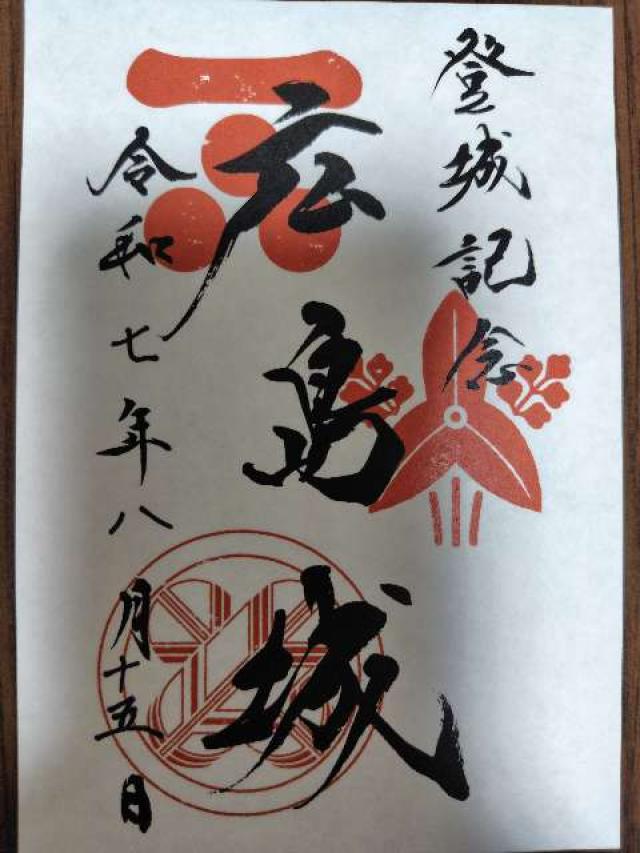 登城記念
広島城
令和七年八月十五日